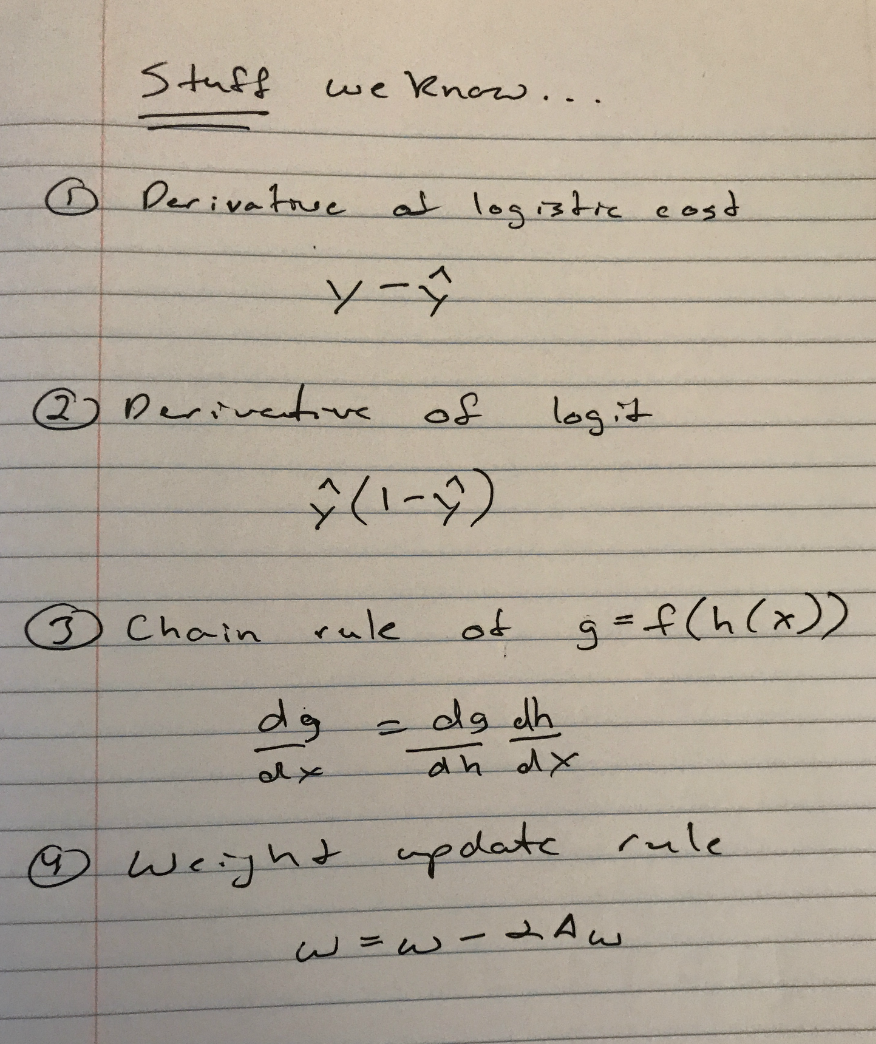 Stuff we know...
① Derivative of logistic cost
y - ŷ
② Derivative of logit
ŷ(1-ŷ)
③ Chain rule of g = f(h(x))
dg/dx = dg/dh dh/dx
④ Weight update rule
w = w - α Δw